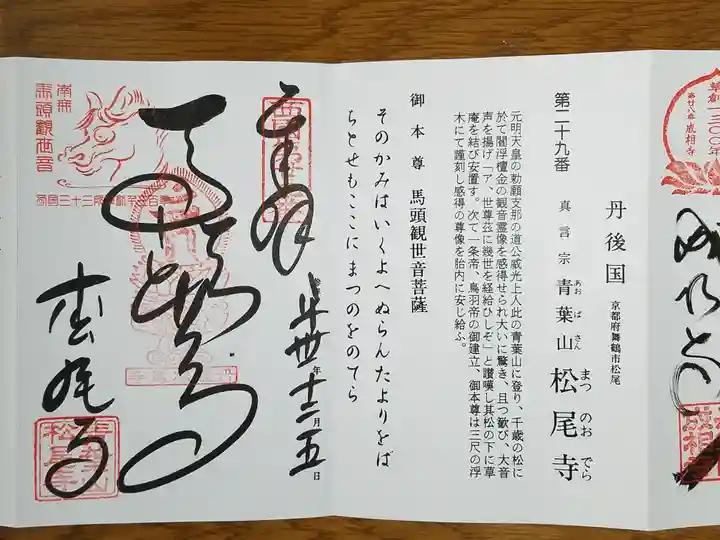 草創一三〇〇年
第廿八番 成相寺
丹後国
京都府舞鶴市松尾
第二十九番
真言宗 青葉山 松尾寺
あお ば さん まつ のお でら
元明天皇の勅願支那の道公威光上人此の青葉山に登り、千歳の松に
於て閻浮檀金の観音霊像を感得せられ大いに驚き、且つ歓び、大音
声を揚げ「ア、世尊茲に幾世を経給ひしぞ」と讃嘆し其松の下に草
庵を結び安置す。次で一条帝、鳥羽帝の御建立、御本尊は三尺の浮
木にて謹刻し感得の尊像を胎内に安じ給ふ。
御本尊 馬頭観世音菩薩
そのかみはいくよへぬらんたよりをば
ちとせもここにまつのをのてら
奉拝
年 月 日
十二 五
南無
馬頭観世音
松尾寺